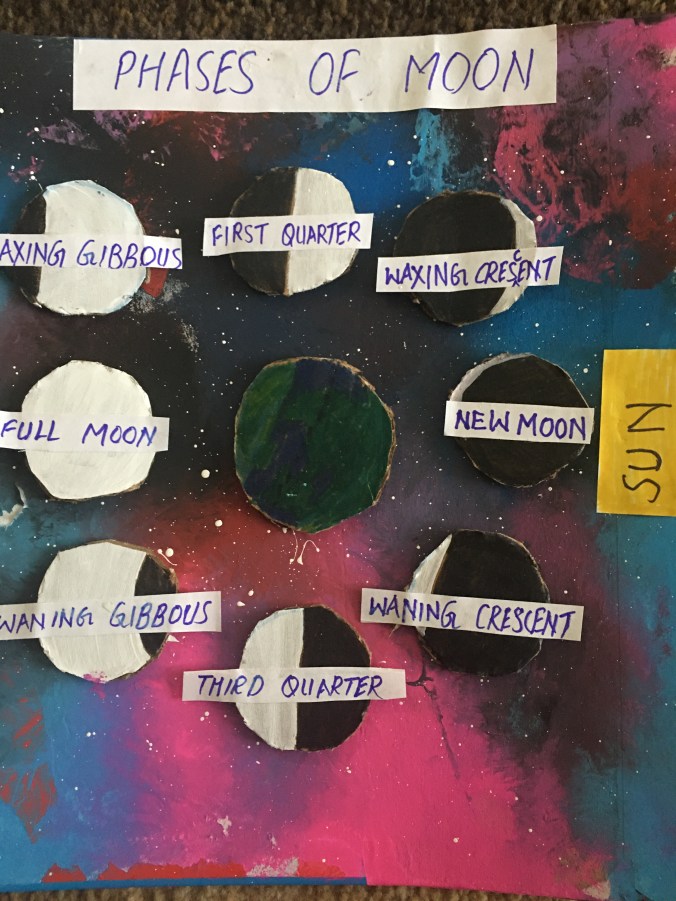 PHASES OF MOON
AXING GIBBOUS
FIRST QUARTER
WAXING CRESCENT
FULL MOON
NEW MOON
SUN
WANING GIBBOUS
WANING CRESCENT
THIRD QUARTER